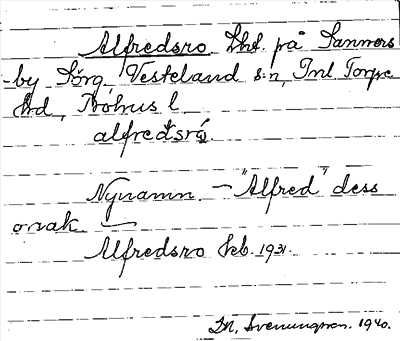 Alfredsro. Lht. på Sanners-
by Sörg. Västerland s:n, Inl Torpe
hd, Bohus l.
alfredsrό.
Nynamn. — "Alfred" dess
orsak. —
Alfredsro Jkb. 1931.
D. Svenungsson. 1940.